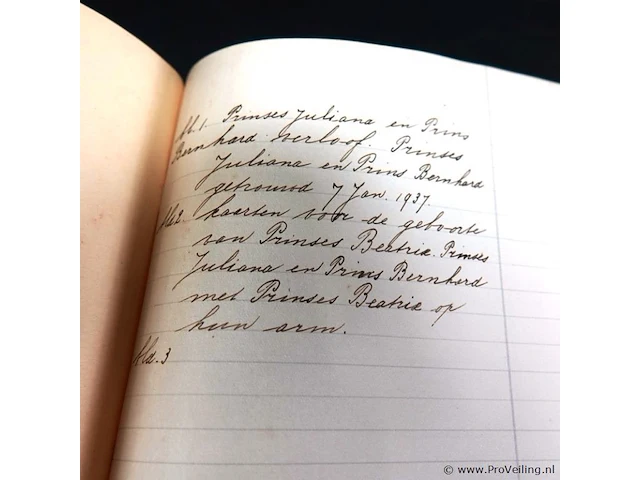 Prinses Juliana en Prins
Bernhard verloof. Prinses
Juliana en Prins Bernhard
getrouwd 7 Jan. 1937.
kaarten voor de geboorte
van Prinses Beatrix. Prinses
Juliana en Prins Bernhard
met Prinses Beatrix op
hun arm.
3
© www.ProVeiling.nl